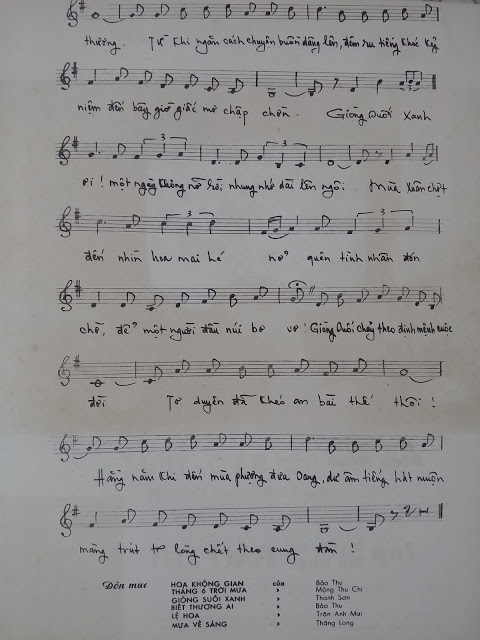 thương. Từ khi ngăn cách chuyện buồn dâng lên, đêm ru tiếng khúc kỷ
niệm đến bây giờ giấc mơ chập chờn. Giòng Suối Xanh
ơi! một ngày không nở rồi nhung nhớ dài lên ngôi. Mùa Xuân chợt
3 3
đến nhìn hoa mai hé nở quên tình nhân đón
3 3 3
chờ, để một người đầu núi bơ vơ! Giòng Suối chảy theo định mệnh cuộc
đời Tơ duyên đã khéo an bài thế thôi!
Hằng năm khi đến mùa phượng đưa sang, dư âm tiếng hát muôn
màng trút tơ lòng chết theo cung đàn!
Đón mua HOA KHÔNG GIAN của Bảo Thu
THÁNG 6 TRỜI MƯA » Mộng Thu Chi
GIÒNG SUỐI XANH » Thanh Sơn
BIẾT THƯƠNG AI » Bảo Thu
LỆ HOA » Trần Anh Mai
MƯA VỀ SÁNG » Thăng Long